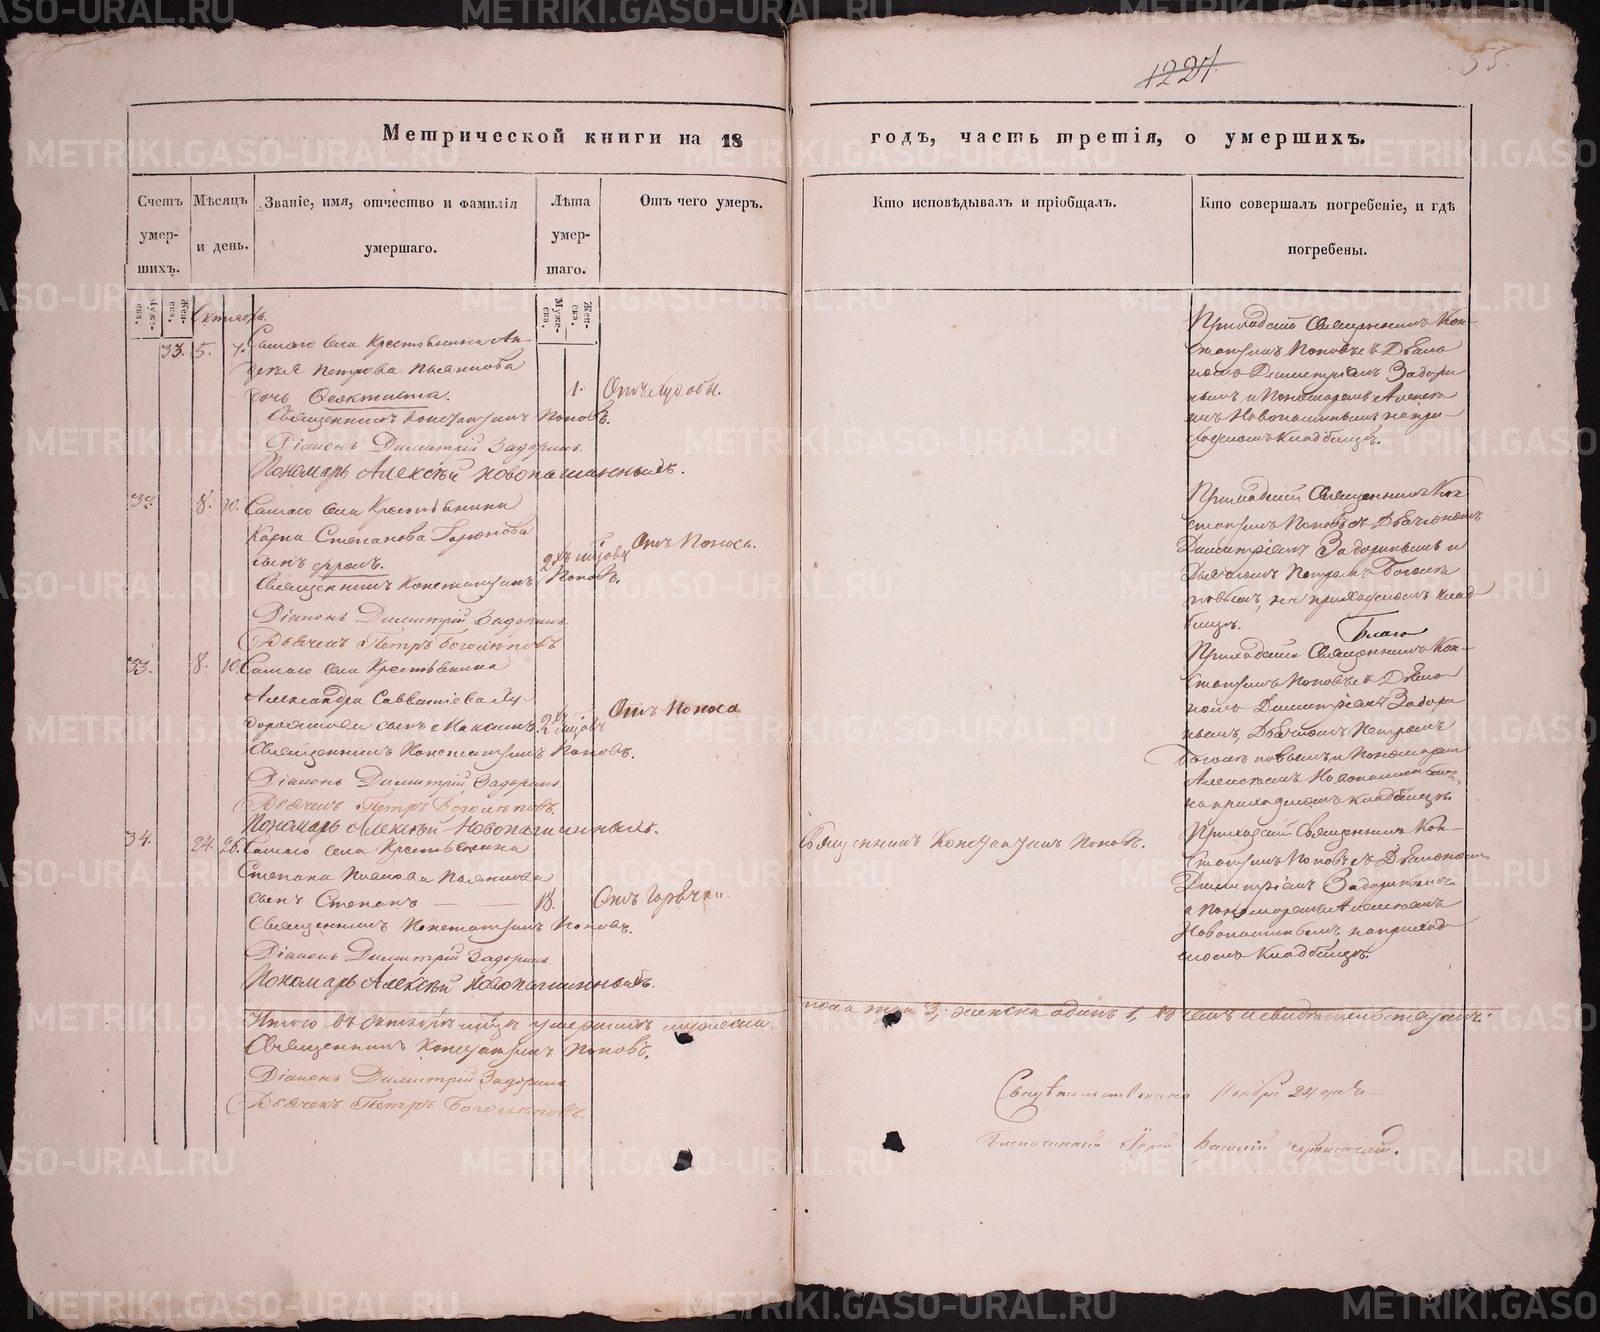 1221
55.
Метрической книги на 18 годъ, часть третія, о умершихъ.
Счетъ умер-шихъ.
Мѣсяцъ и день.
Званіе, имя, отчество и фамилія умершаго.
Лѣта умер-шаго.
Отъ чего умеръ.
Кто исповѣдывалъ и пріобщалъ.
Кто совершалъ погребеніе, и гдѣ погребены.
Муже-ска.
Жен-ска.
Муже-ска.
Жен-ска.
Октябрь
33. 5. 7. Самаго села Крестьянина
Петрова
дочь Феоктиста. 1.
Священникъ Константинъ Поповъ.
Діаконъ Димитрій Задоринъ
Пономарь Алексѣй Новопашинный.
Приходскій Священникъ Кон-
стантинъ Поповъ съ Діако
номъ Димитріемъ Задори
нымъ и Пономаремъ Алексѣ
емъ Новопашиннымъ на при-
ходскомъ Кладбищѣ.
8. 10. Самаго села Крестьянина
Карпа Степанова
сынъ Фролъ. Отъ Поноса.
Священникъ Константинъ Поповъ.
Діаконъ Димитрій Задоринъ
Дьячекъ Петръ Боголѣповъ
Приходскій Священникъ Кон
стантинъ Поповъ съ Діакономъ
Димитріемъ Задоринымъ и
Дьячкомъ Петромъ Боголѣ
повымъ, на приходскомъ клад
бищѣ.
33. 8. 10. Самаго села Крестьянина
Александра Савватіева
сынъ Максимъ. Отъ Поноса
Священникъ Константинъ Поповъ.
Діаконъ Димитрій Задоринъ
Дьячекъ Петръ Боголѣповъ.
Пономарь Алексѣй Новопашинный.
Приходскій Священникъ Кон-
стантинъ Поповъ съ Діако
номъ Димитріемъ Задори
нымъ, Дьячкомъ Петромъ
Боголѣповымъ и Пономаремъ
Алексѣемъ Новопашиннымъ
на приходскомъ кладбищѣ.
34. 24. 26. Самаго села Крестьянина
Степана Иванова
сынъ Степанъ 18. Отъ Горячки.
Священникъ Константинъ Поповъ.
Діаконъ Димитрій Задоринъ
Пономарь Алексѣй Новопашинный.
Священникъ Константинъ Поповъ.
Приходскій Священникъ Кон-
стантинъ Поповъ съ Діакономъ
Димитріемъ Задоринымъ
и Пономаремъ Алексѣемъ
Новопашиннымъ на приход
скомъ Кладбищѣ.
Итого въ Октябрѣ мѣсяцѣ умершихъ мужеска
пола три 3, женска одинъ 1, въ чемъ и свидѣтельствуемъ:
Священникъ Константинъ Поповъ.
Діаконъ Димитрій Задоринъ
Дьячекъ Петръ Боголѣповъ.
Свидѣтельствовано Ноября 24 дня
Благочинный Іерей Василій
METRIKI.GASO-URAL.RU